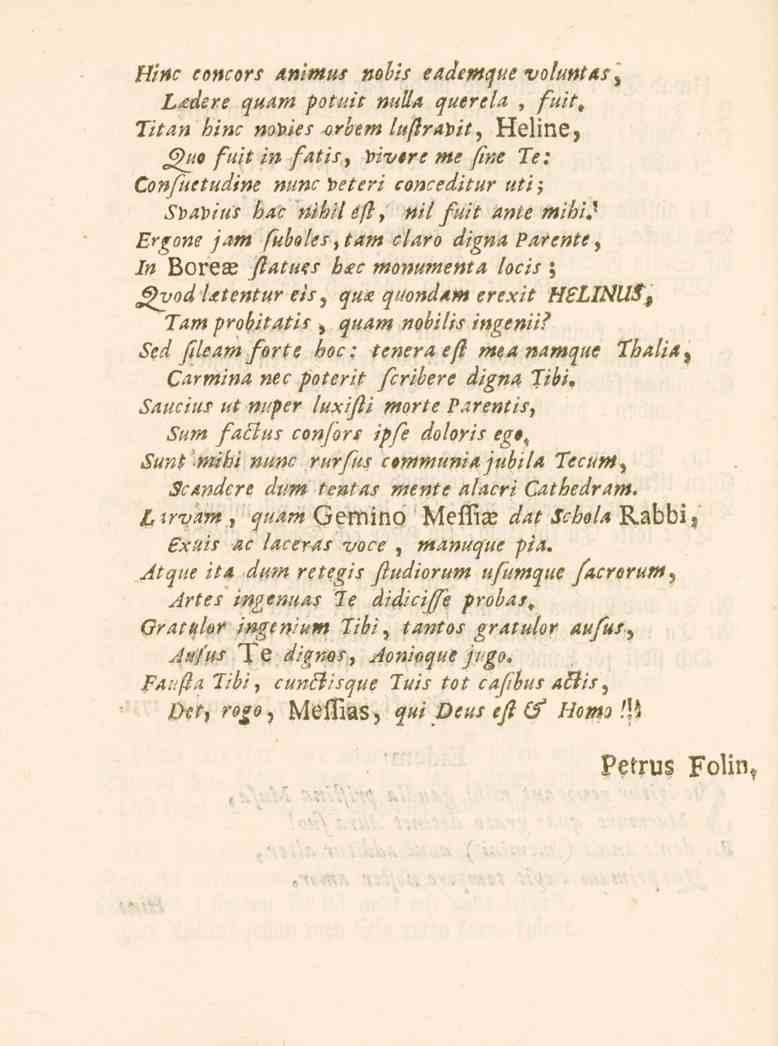 Hinc concors animus nobis eademque voluntas,
Lædere quam potuit nulla querela, fuit.
Titan hinc novies orbem luſtravit, Heline,
Quo fuit in fatis, vivere me ſine Te:
Conſuetudine nunc veteri conceditur uti;
Svavius hac nihil eſt, nil fuit ante mihi.
Ergone jam ſuboles, tam claro digna Parente,
In Boreæ ſtatues hæc monumenta locis;
Qvod lætentur eis, quæ quondam erexit HELINUS,
Tam probitatis, quam nobilis ingenii?
Sed ſileam forte hoc: tenera eſt mea namque Thalia,
Carmina nec poterit ſcribere digna Tibi.
Saucius ut nuper luxiſti morte Parentis,
Sum factus conſors ipſe doloris ego,
Sunt mihi nunc rurſus communia jubila Tecum,
Scandere dum tentas mente alacri Cathedram.
Larvam, quam Gemino Meſſiæ dat Schola Rabbi,
Exuis ac laceras voce, manuque pia.
Atque ita dum retegis ſtudiorum uſumque ſacrorum,
Artes ingenuas Te didiciſſe probas.
Gratulor ingenium Tibi, tantos gratulor auſus,
Auſus Te dignos, Aonioque jugo.
Fauſta Tibi, cunctisque Tuis tot caſibus actis,
Det, rogo, Meſſias, qui Deus eſt & Homo !!!
Petrus Folin.